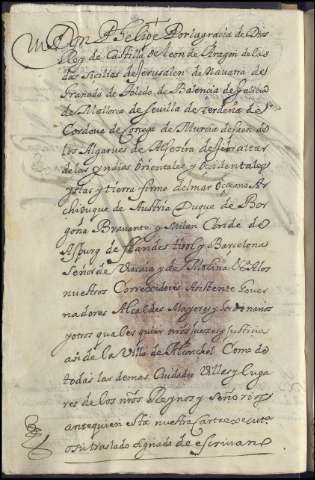 Don Phelipe Por la gracia de Dios
Rey de Castilla de Leon de Aragon de las
dos Sicilias de Jerusalen de Navarra de
Granada de Toledo de Valencia de Galicia
de Mallorca de Sevilla de Cerdeña de
Cordova de Corcega de Murcia de Jaen de
los Algarves de Algecira de Gibraltar
de las Yndias Orientales y Ocidentales
yslas y tierra firme del mar Oceano Ar
chiduque de Austria Duque de Bor
goña Bravante y Milan Conde de
Aspurg de flandes tirol y Barcelona
Señor de Vizcaia y de Molina &c Alos
nuestros Correxidores Asistente Gover
nadores Alcaldes Mayores y hordinarios
y otros qualesquier nros juezes y justicias
asi de la Villa de Como de
todas las demas Ciudades Villas y Luga
res de los nros Reynos y Señorios
ante quien esta nuestra carta executo
o su traslado signado de escrivano